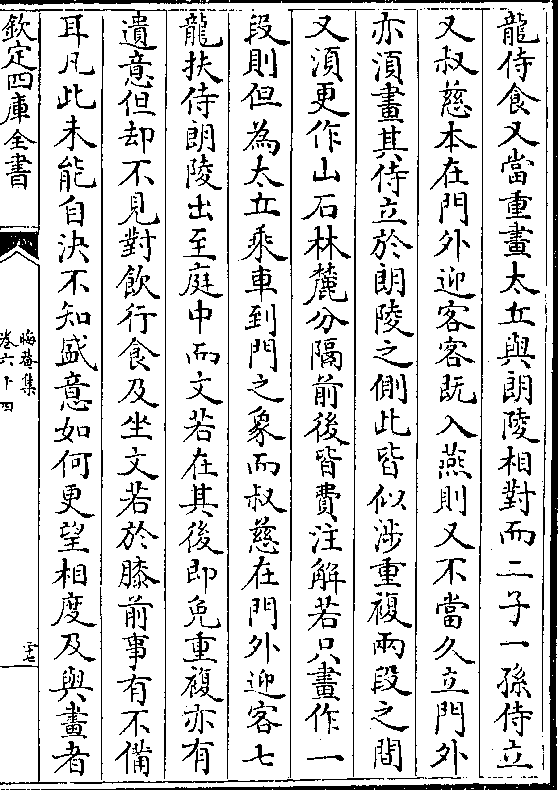 龍侍食又當重畫太丘與朗陵相對而二子一孫侍立
又叔慈本在門外迎客客既入燕則又不當久立門外
亦須畫其侍立於朗陵之側此皆似涉重複兩段之間
又須更作山石林麓分隔前後皆費注解若只畫作一
段則但為太丘乘車到門之象而叔慈在門外迎客七
龍扶侍朗陵出至庭中而文若在其後即免重複亦有
遺意但却不見對飲行食及坐文若於膝前事有不備
耳凡此未能自決不知盛意如何更望相度及與畫者
欽定四庫全書
晦菴集
卷六十四
二十七